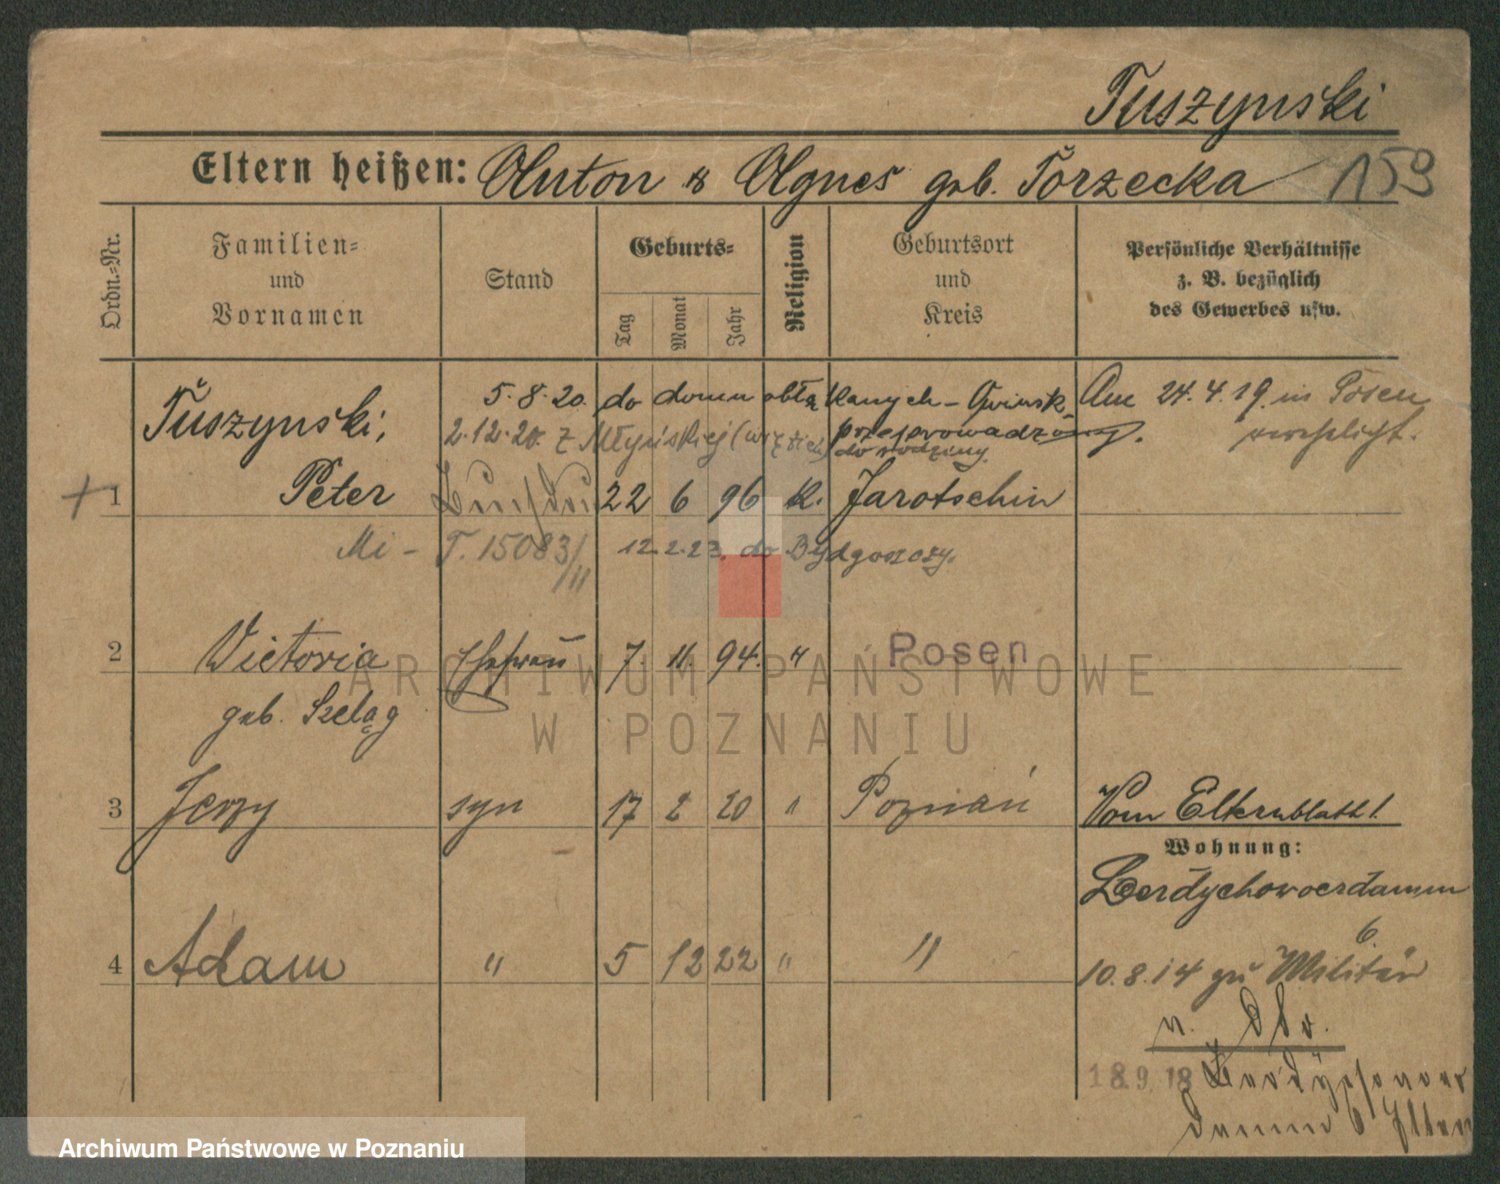 Tuszynski
Eltern heißen: Anton & Agnes geb. Torzecka 159
Ordn.=Nr.
Familien=
und
Vornamen
Stand
Geburts=
Tag
Monat
Jahr
Religion
Geburtsort
und
Kreis
Persönliche Verhältnisse
z. B. bezüglich
des Gewerbes usw.
Tuszynski, 5.8.20. do domu obłąkanych - Am 24.4.19. in Posen
2.12.20. z Młyńskiej przeprowadzony verehelicht.
do rodziny
1 Peter 22 6 96 K. Jarotschin
T. 15083/II 12.2.23. do Bydgoszczy.
2 Victoria Ehefrau 7. 11. 94. " Posen
geb. Szeląg
3 Jerzy syn 17 2 20 " Poznań Vom Elternblatt!
Wohnung:
Berdychowoerdamm
6.
4 Adam " 5 12 22 " " 10.8.14 zu Militär
v. dto.
18.9.18 Berdychowoer
damm 6 Eltern
ARCHIWUM PAŃSTWOWE
W POZNANIU
Archiwum Państwowe w Poznaniu